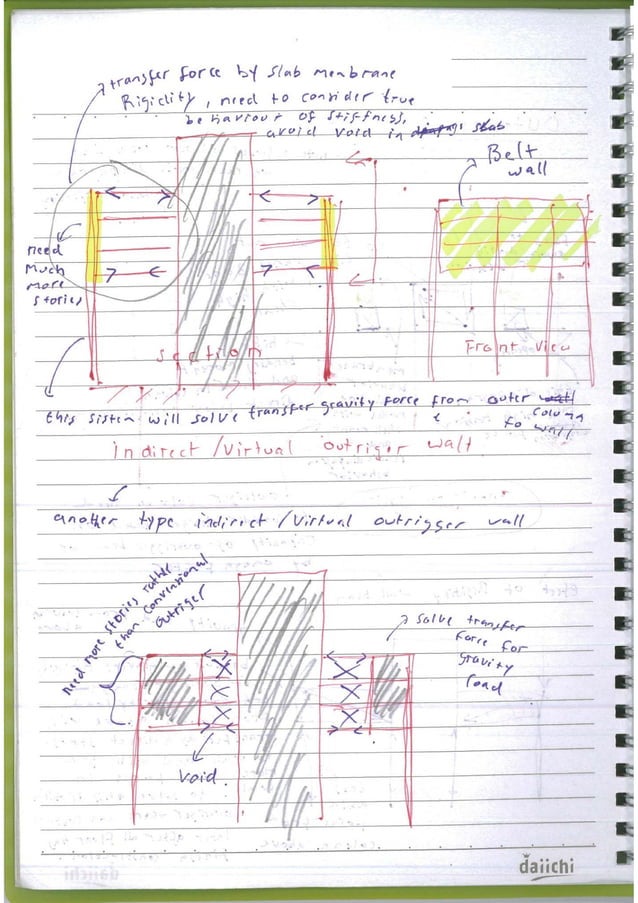 transfer force by slab membrane
Rigidity, need to consider true
behaviour of stiffness,
avoid void in slab
Belt
wall
need
much
more
stories
section
Front view
this sistem will solve transfer gravity force from outer column
to wall
indirect/Virtual outriger wall
another type indirect/Virtual outrigger wall
Need more stories rather
than conventional
outriger
solve transfer
force for
gravity
load
void
daiichi